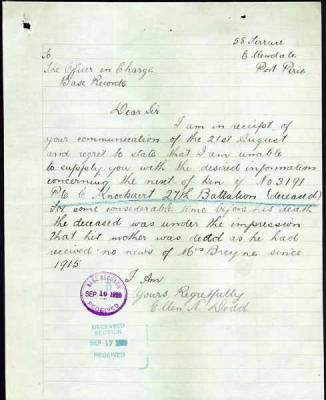 58 Terrace
Ellendale
Port Pirie
To
The Officer in Charge
Base Records
Dear Sir
I am in receipt of
your communication of the 21st August
and regret to state that I am unable
to supply you with the desired information
concerning the next of ken of No 3191
Pte C Knockaert 27th Battalion (deceased)
For some considerable time before his death
the deceased was under the impression
that his mother was dead as he had
received no news of Mrs Breyne since
1915
I Am
Yours Regretfully
Ellen A. Dodd
BASE RECORDS
SEP 16
RECEIVED
DECEASED
SECTION
SEP 17
RECEIVED